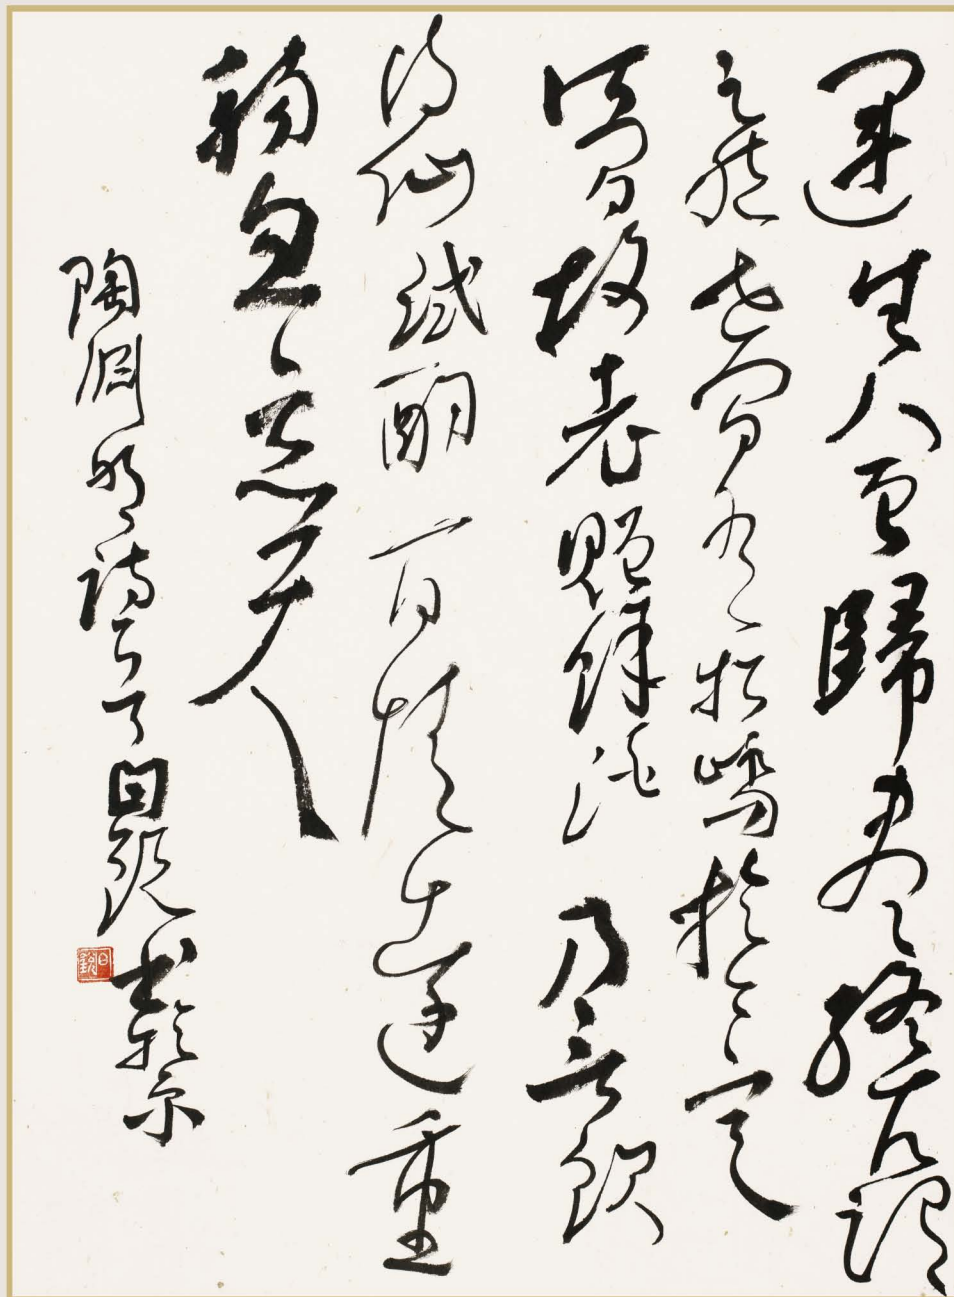 運生會歸盡終古謂
之然世間有松嶠於今定
何間故老贈餘酒乃言飲
得仙試酌百情遠重
觴忽忘天
陶淵明詩 書於京